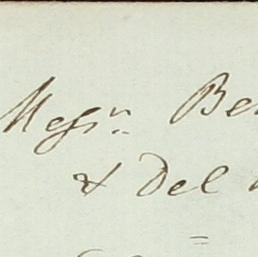 Messrs. Be
& Del